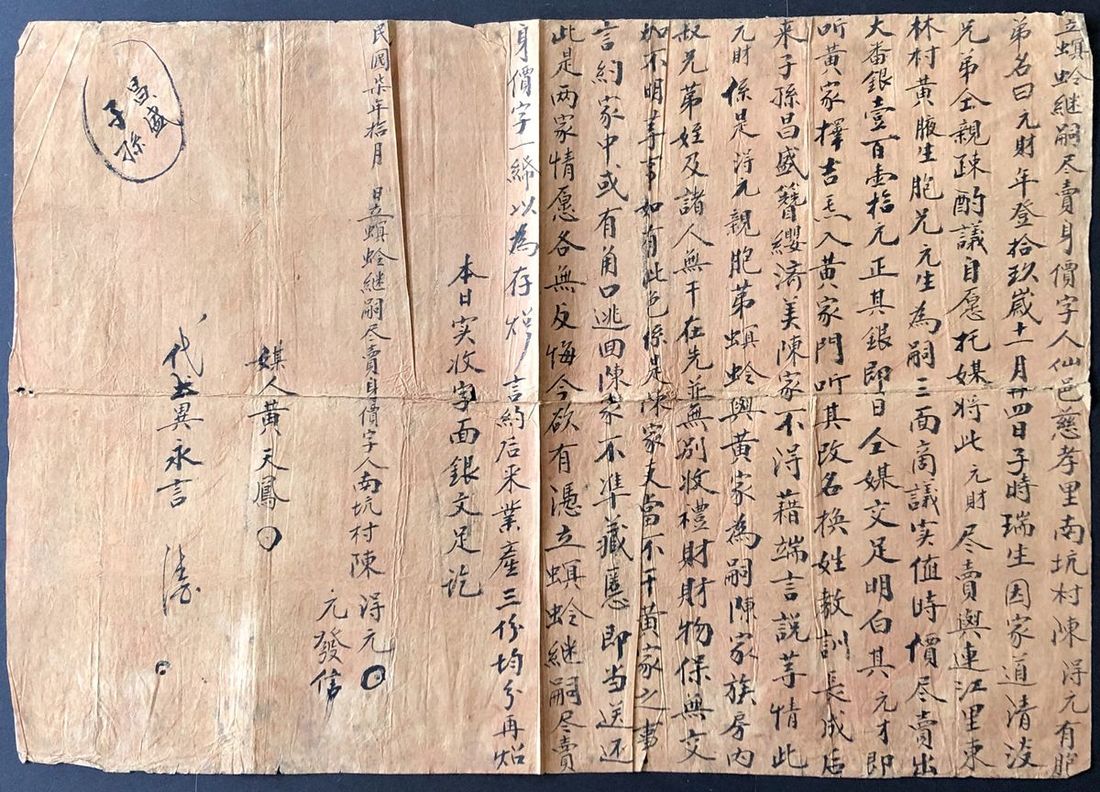 立螟蛉继嗣尽賣身價字人仙邑慈孝里南坑村陳得元有胞
弟名曰元財年登拾玖歲十一月廿四日子時瑞生因家道清淡
兄弟仝親疎酌議自愿托媒将此元財尽賣與連江里東
林村黄腋生胞兄元生為嗣三面商議实值時價尽賣出
大番銀壹百壹拾元正其銀即日仝媒交足明白其元才即
听黄家擇吉入黄家門听其改名换姓教訓長成后
来子孫昌盛簪纓济美陳家不得藉端言説䓁情此
元財係是淂元親胞苐螟蛉與黄家為嗣陳家族房内
叔兄苐姪及諸人無干在先並無别收禮財財物保無交
加不明䓁事如有此色係是陳家支當不干黄家之事
言約家中或有角口逃回陳家不準藏慝即当送还
此是两家情愿各無反悔今欲有憑立螟蛉継嗣尽賣
身價字一綈以為存炤 言約后来業産三份均分再炤
本日实收字面銀文足讫
民國柒年拾月 日立螟蛉継嗣尽賣身價字人南坑村陳淂元
元發信
媒人黄天鳳
代書異永言
昌盛
子孫